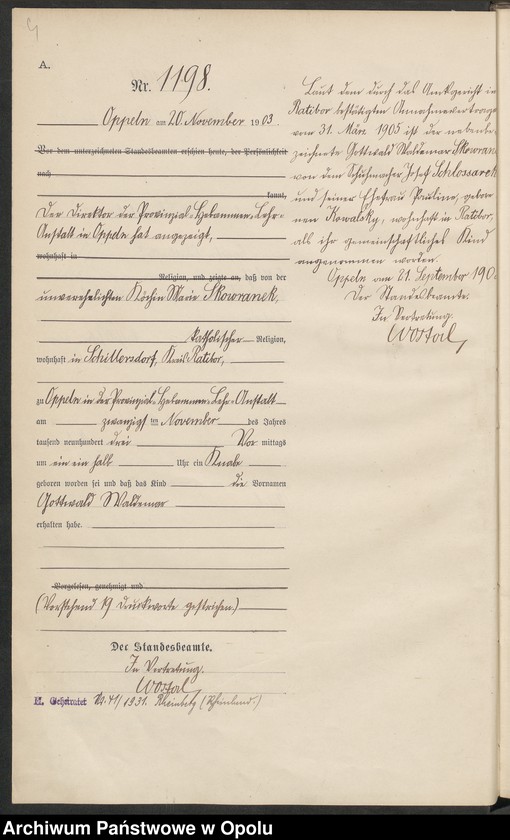 A.
Nr. 1198.
Oppeln am 20. November 1903.
Vor dem unterzeichneten Standesbeamten erschien heute, der Persönlichkeit
nach
kannt,
Der Direktor der Provinzial-Hebammen-Lehr-
Anstalt in Oppeln hat angezeigt,
wohnhaft in
Religion, und zeigte an, daß von der
unverehelichten Köchin Marie Skowranek,
katholischer Religion,
wohnhaft in Schillersdorf, Kreis Ratibor,
zu Oppeln in der Provinzial-Hebammen-Lehr-Anstalt
am zwanzigst en November des Jahres
tausend neunhundert drei Vor mittags
um ein ein halb Uhr ein Knabe
geboren worden sei und daß das Kind die Vornamen
Gottwald Waldemar
erhalten habe.
Vorgelesen, genehmigt und
(Vorstehend 19 Druckworte gestrichen.)
Der Standesbeamte.
In Vertretung.
Wostal
H. Geheiratet Nr. 41/1931. Rheinberg (Rheinland.)
Laut dem durch das Amtsgericht in
Ratibor bestätigten Annahmevertrage
vom 31. März 1905 ist der nebenbe-
zeichnete Gottwald Waldemar Skowran
von dem Schuhmacher Josef Schlossarek
und seiner Ehefrau Pauline, gebor-
nen Kowalsky, wohnhaft in Ratibor,
als ihr gemeinschaftliches Kind
angenommen worden.
Oppeln am 21. September 190
Der Standesbeamte.
In Vertretung.
Wostal
Archiwum Państwowe w Opolu